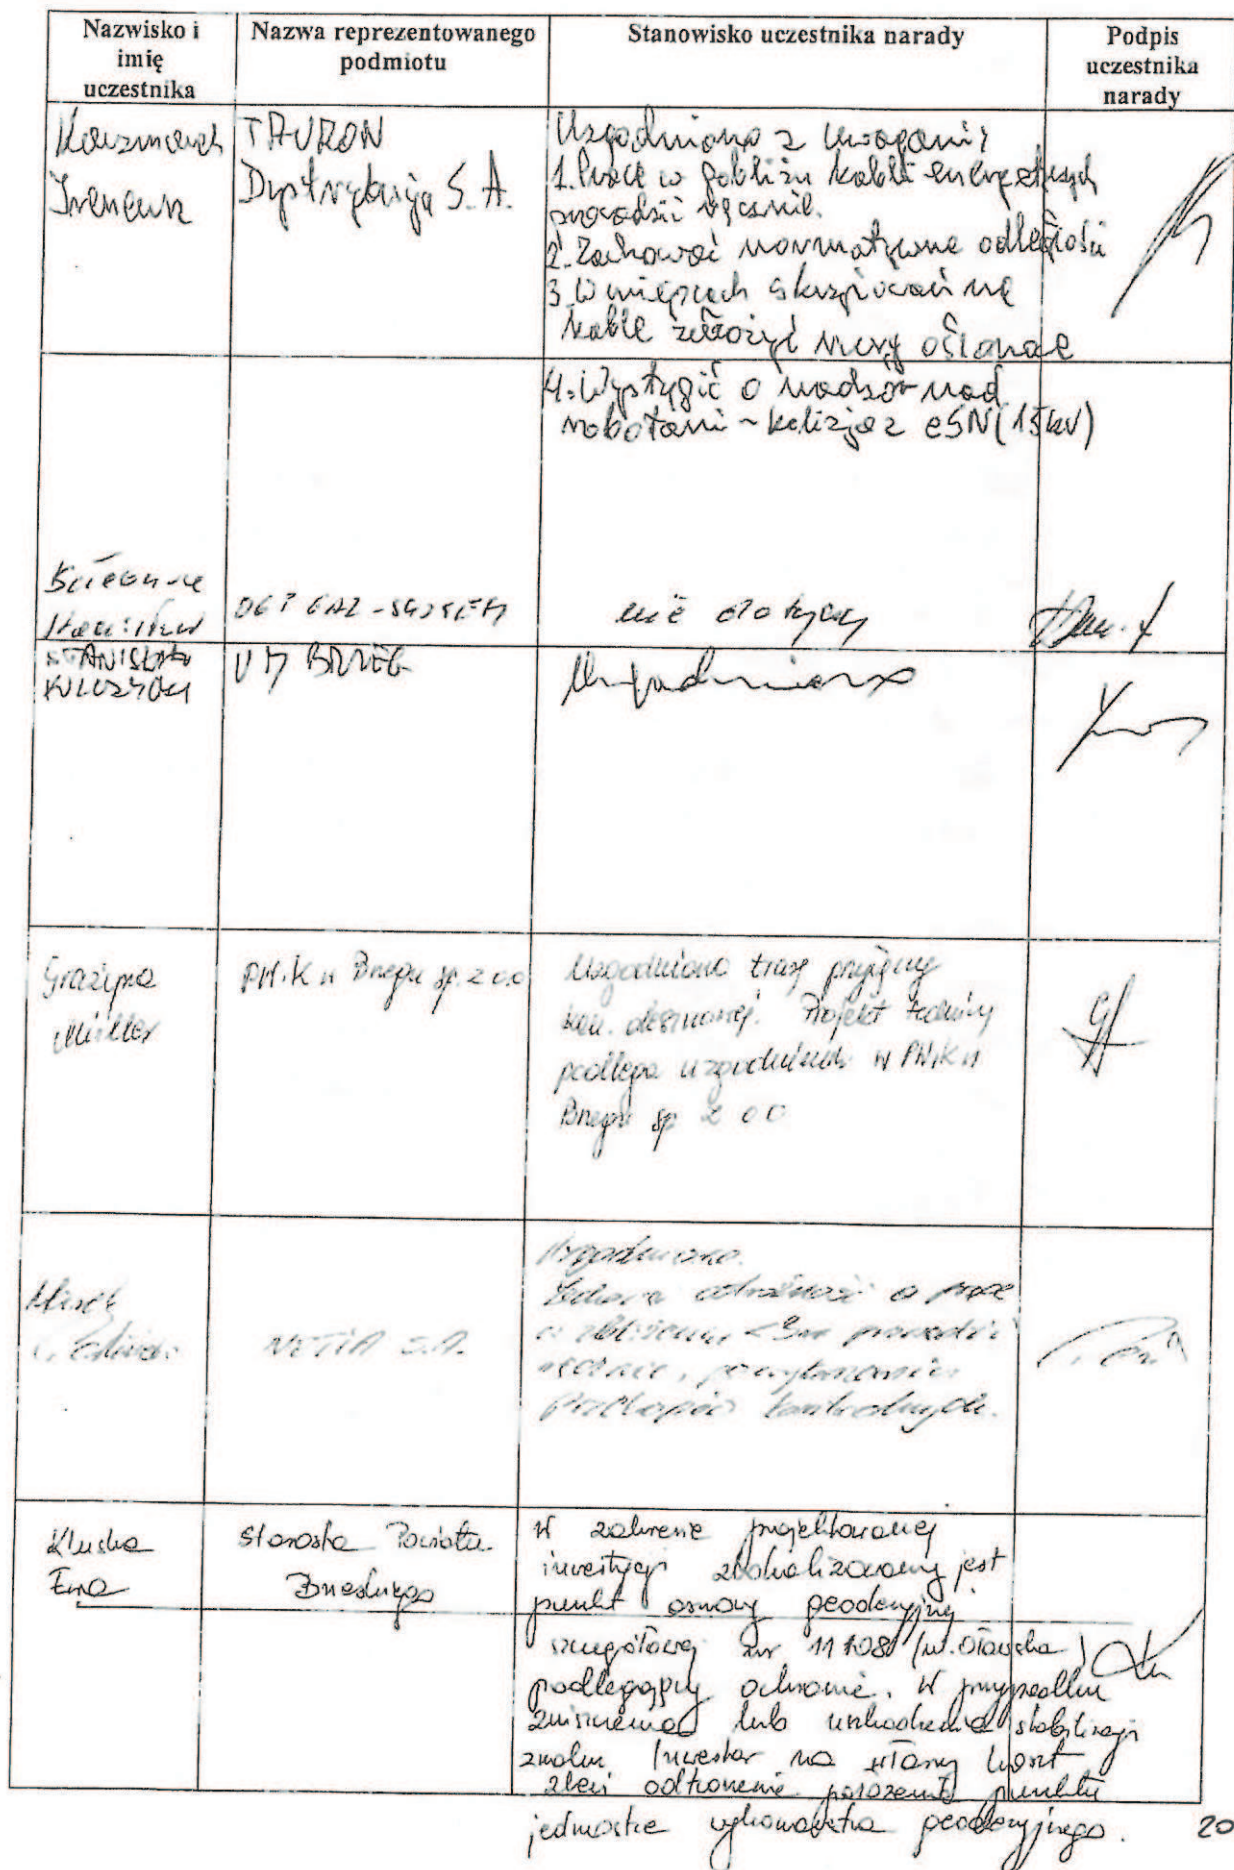 Nazwisko i
imię
uczestnika
Nazwa reprezentowanego
podmiotu
Stanowisko uczestnika narady
Podpis
uczestnika
narady
Kaczmarek
Ireneusz
TAURON
Dystrybucja S.A.
Uzgodniono z uwagami:
1. Prace w pobliżu kabli energetycznych
prowadzić ręcznie.
2. Zachować normatywne odległości
3. W miejscach skrzyżowań na
kable założyć rury osłonowe
4. Wystąpić o nadzór nad
robotami - kolizja z eSN (15kV)
nie dotyczy
STANISŁAW
UM BRZEG
Uzgodniono
Grażyna
Müller
PWiK w Brzegu sp. z o.o.
Uzgodniono trasę przyłączy
kan. deszczowej. Projekt techniczny
podlega uzgodnieniu w PWiK w
Brzegu sp z o o
Marek
NETIA S.A.
Uzgodniono.
ostrożność prace
w zbliżeniu <3m prowadzić
ręcznie, po wykonaniu
przekopów kontrolnych.
Kluska
Ewa
Starosta Powiatu
Brzeskiego
W zakresie projektowanej
inwestycji zlokalizowany jest
punkt osnowy geodezyjnej
szczegółowej nr 11108 (ul. Oławska)
podlegający ochronie. W przypadku
zniszczenia lub uszkodzenia stabilizacji
znaku Inwestor na własny koszt
zleci odtworzenie położenia punktu
jednostce wykonawstwa geodezyjnego.
20